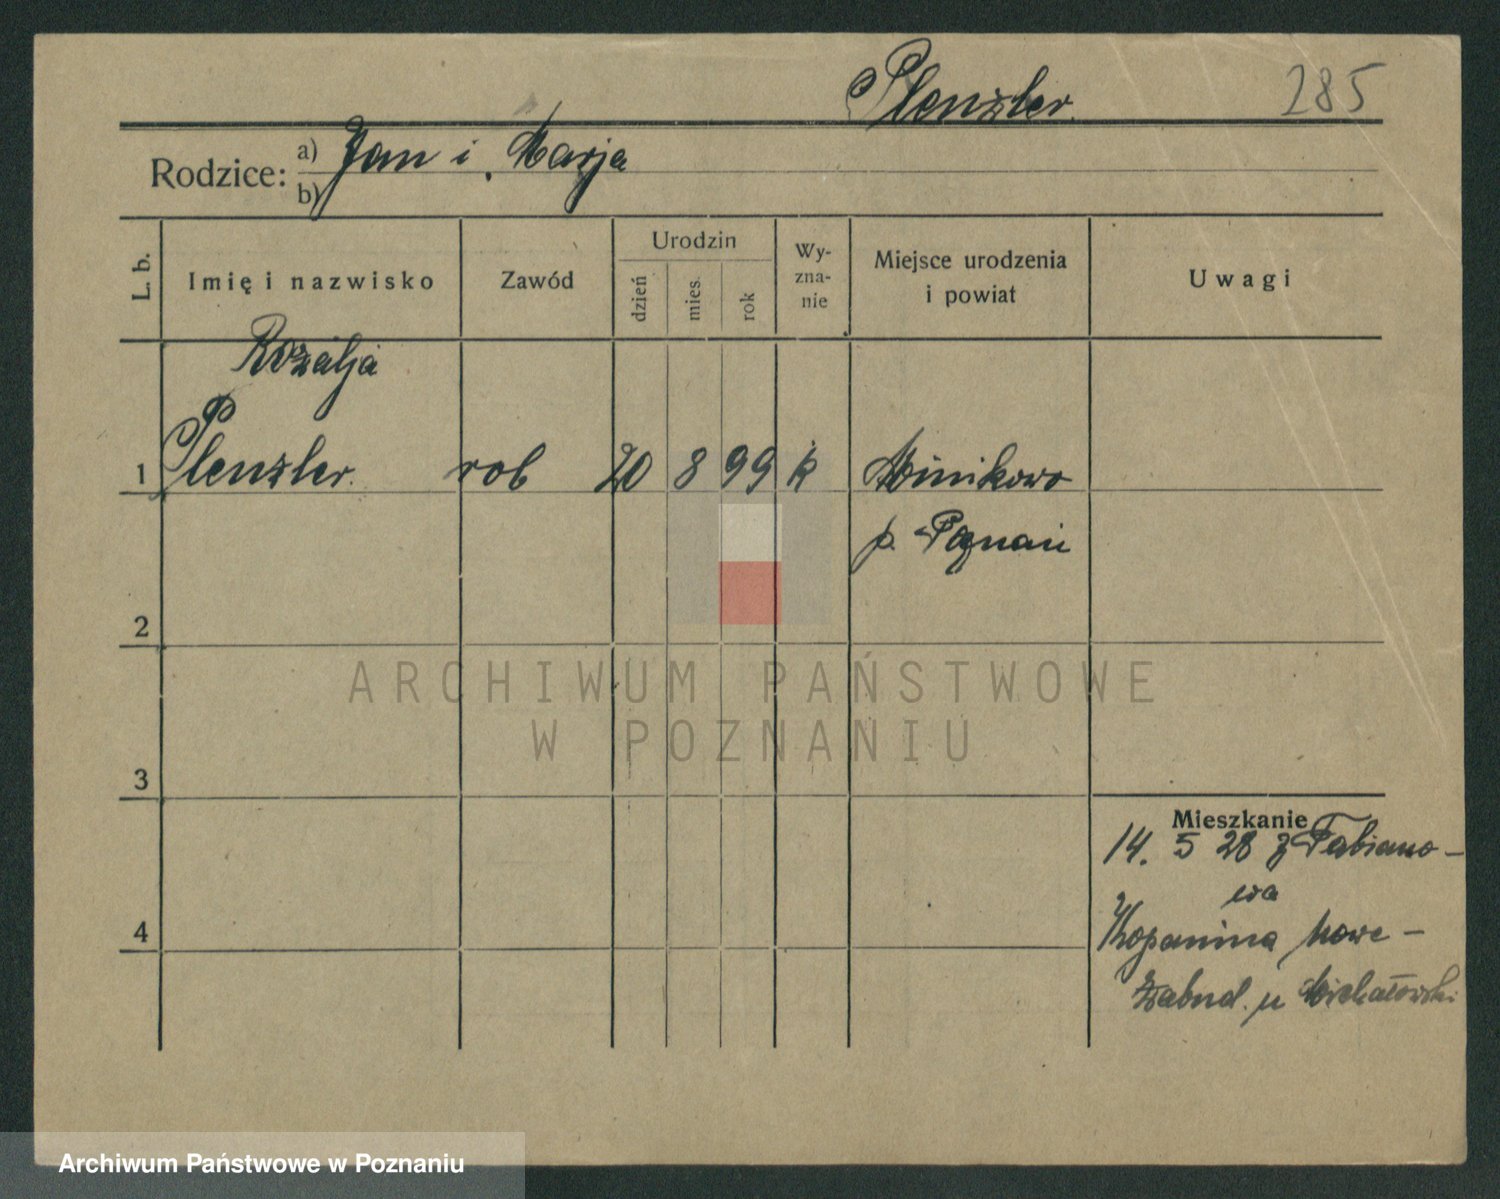 Plenzler 285
Rodzice: a) Jan i Marja
b)
L. b. Imię i nazwisko Zawód Urodzin dzień mies. rok Wyznanie Miejsce urodzenia i powiat Uwagi
Rozalja
1 Plenzler. rob 20 8 99 k Minikowo
p. Poznań
2
3
Mieszkanie
14. 5 28 z Fabiano-
wa
4 Kopanina Nowe-
Zabud. u Michałowski
ARCHIWUM PAŃSTWOWE
W POZNANIU
Archiwum Państwowe w Poznaniu